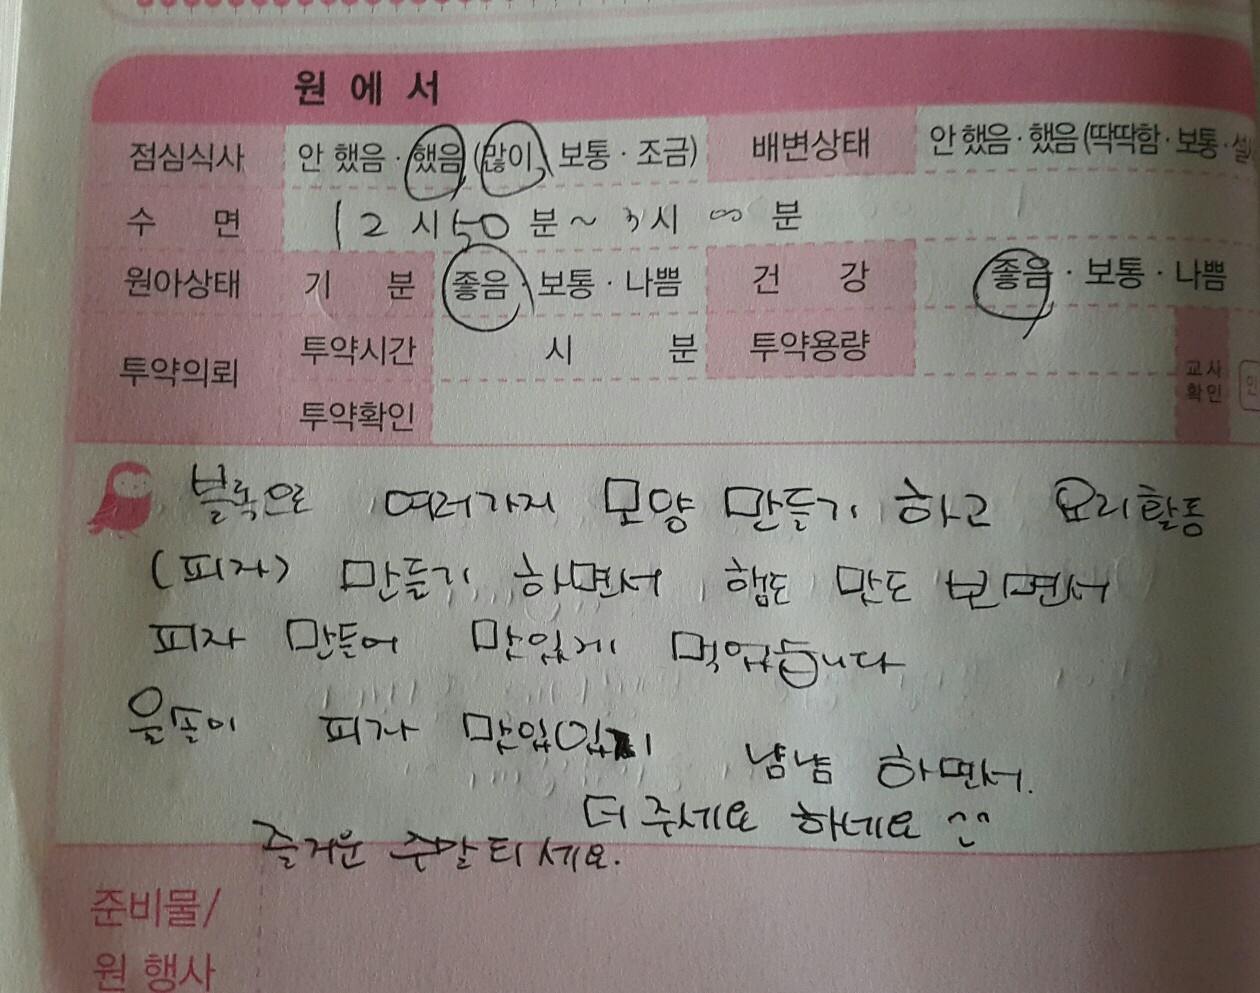 원 에 서
점심식사 안 했음 · 했음 (많이, 보통 · 조금) 배변상태 안 했음 · 했음 (딱딱함 · 보통 · 설
수 면 12 시 50 분 ~ 3 시 00 분
원아상태 기 분 좋음 · 보통 · 나쁨 건 강 좋음 · 보통 · 나쁨
투약의뢰 투약시간 시 분 투약용량
교사
확인
투약확인
블록으로 여러가지 모양 만들기 하고 요리활동
(피자) 만들기 하면서 햄도 맛도 보면서
피자 만들어 맛있게 먹었습니다
피자 냠냠 하면서.
더 주세요 하네요 ^^
즐거운 주말 되세요.
준비물/
원 행사